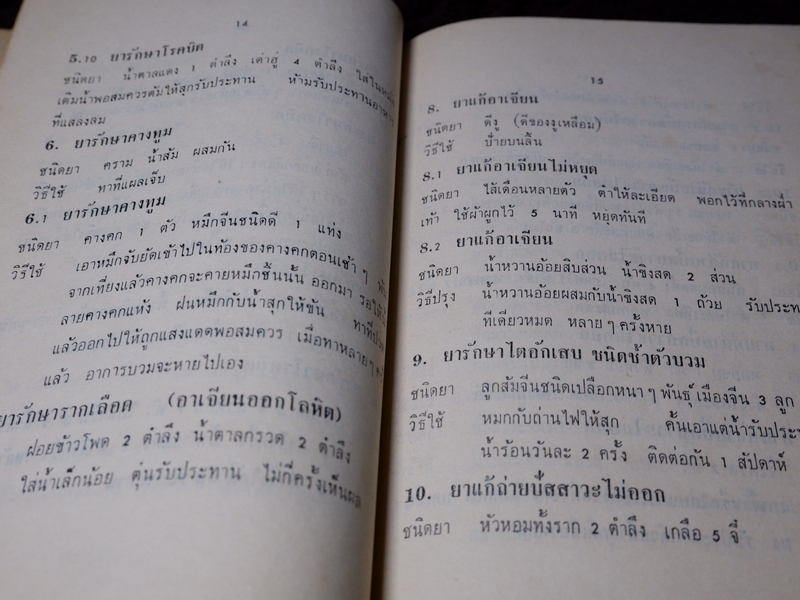 14
5.10 ยารักษาโรคบิด
ชนิดยา น้ำตาลแดง 1 ตำลึง เต่าฮู่ 4 ตำลึง ใส่ใน
เติมน้ำพอสมควรต้มให้สุกรับประทาน ห้ามรับประทานอาหาร
ที่แสลงลม
6. ยารักษาคางทูม
ชนิดยา คราม น้ำส้ม ผสมกัน
วิธีใช้ ทาที่แผลเจ็บ
6.1 ยารักษาคางทูม
ชนิดยา คางคก 1 ตัว หมึกจีนชนิดดี 1 แท่ง
วิธีใช้ เอาหมึกจับยัดเข้าไปในท้องของคางคกตอนเช้า ๆ
จากเที่ยงแล้วคางคกจะคายหมึกชิ้นนั้น ออกมา รอให้
ลายคางคกแห้ง ฝนหมึกกับน้ำสุกให้ข้น ทาที่
แล้วออกไปให้ถูกแสงแดดพอสมควร เมื่อทาหลายๆ
แล้ว อาการบวมจะหายไปเอง
ยารักษารากเลือด (อาเจียนออกโลหิต)
ฝอยข้าวโพด 2 ตำลึง น้ำตาลกรวด 2 ตำลึง
ใส่น้ำเล็กน้อย ตุ๋นรับประทาน ไม่กี่ครั้งเห็นผล
15
8. ยาแก้อาเจียน
ชนิดยา ดีงู (ดีของงูเหลือม)
วิธีใช้ ป้ายบนลิ้น
8.1 ยาแก้อาเจียนไม่หยุด
ชนิดยา ไส้เดือนหลายตัว ตำให้ละเอียด พอกไว้ที่กลางฝ่า
เท้า ใช้ผ้าผูกไว้ 5 นาที หยุดทันที
8.2 ยาแก้อาเจียน
ชนิดยา น้ำหวานอ้อยสิบส่วน น้ำขิงสด 2 ส่วน
วิธีปรุง น้ำหวานอ้อยผสมกับน้ำขิงสด 1 ถ้วย รับประท
ทีเดียวหมด หลายๆครั้งหาย
9. ยารักษาไตอักเสบ ชนิดช้ำตัวบวม
ชนิดยา ลูกส้มจีนชนิดเปลือกหนาๆพันธุ์เมืองจีน 3 ลูก
วิธีใช้ หมกกับถ่านไฟให้สุก คั้นเอาแต่น้ำรับประ
น้ำร้อนวันละ 2 ครั้ง ติดต่อกัน 1 สัปดาห์
10. ยาแก้ถ่ายปัสสาวะไม่ออก
ชนิดยา หัวหอมทั้งราก 2 ตำลึง เกลือ 5 จี๋